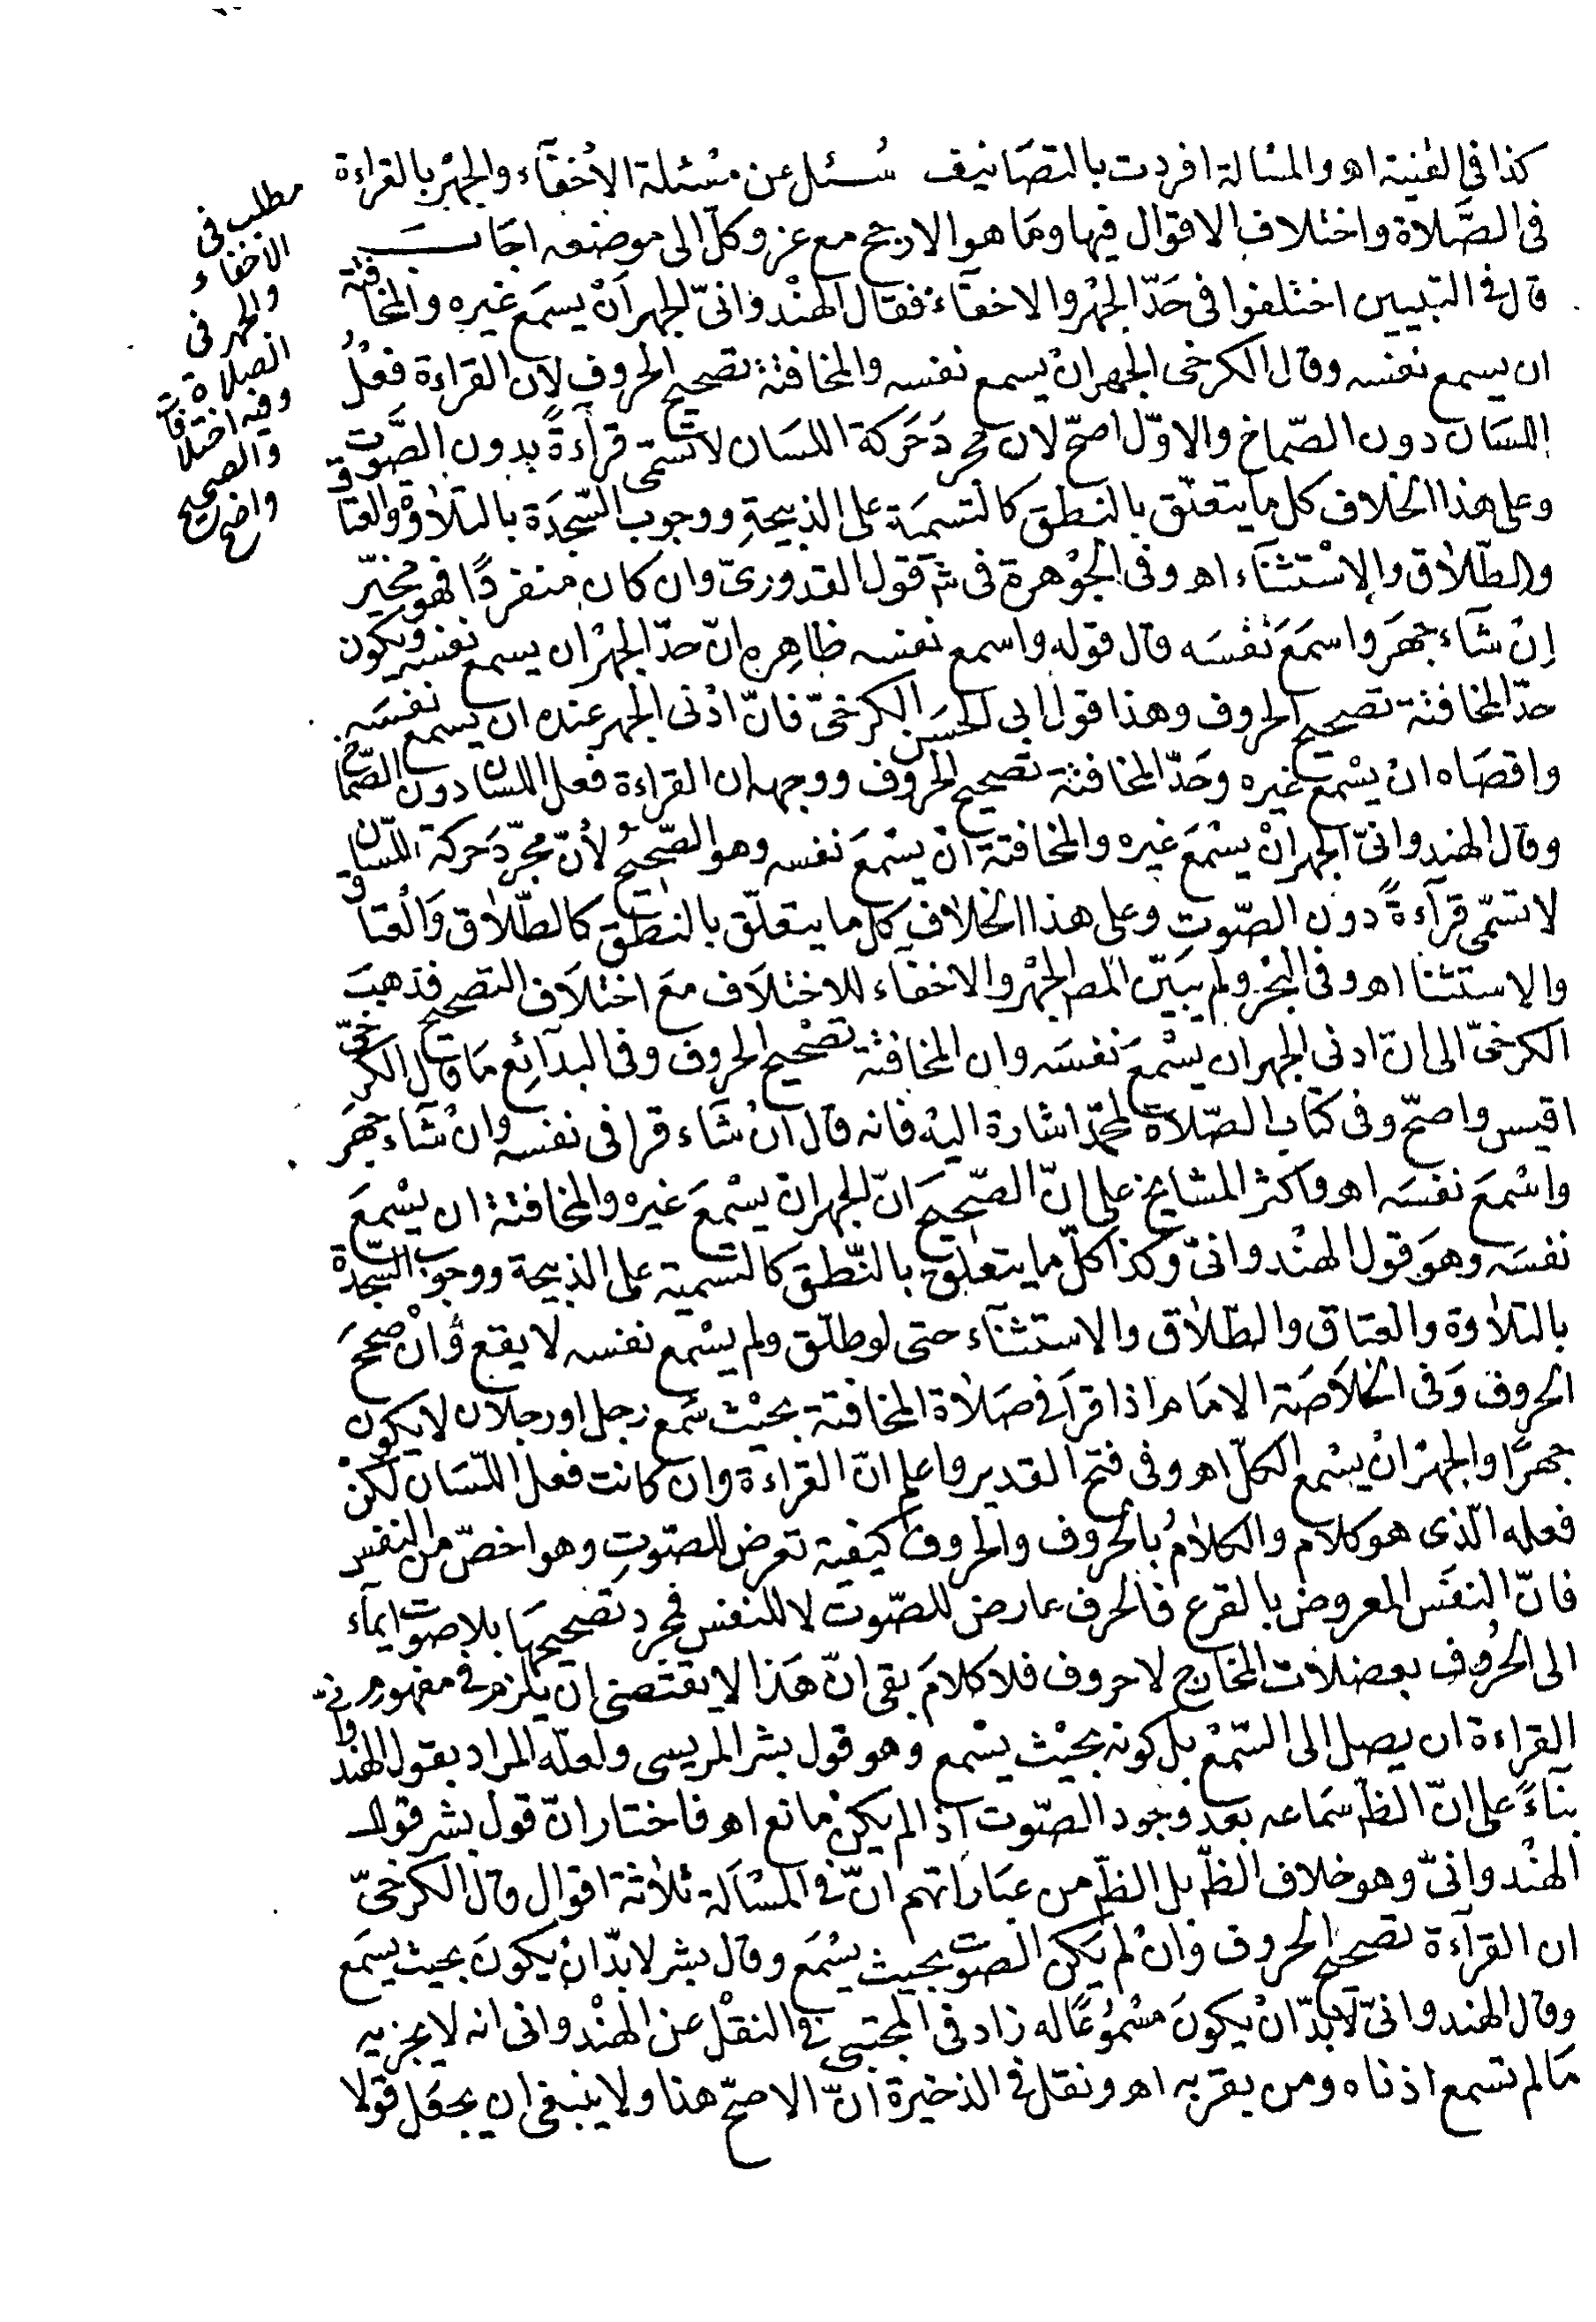 كذا فى القنية اه والمسالة افردت بالتصانيف سُئل عن مسْئلة الاخفآء والجهْر بالقراءة
فى الصَّلاة واختلاف الاقوال فيها ومَا هو الارجح مع عزو كلّ الى موضعه اجَابَ
قال فى التبيين اختلفوا فى حَدّ الجهْر والاخفآء فقال الهنْدوانىّ الجهر اَنْ يسمَع غيره والمخافتة
ان يسمع نفسه وقال الكرخى الجهر انْ يسمع نفسه والمخافتة تصحيح الحروف لان القراءة فعْلُ
اللسَان دون الصّماخ والاوّل اصحّ لان مجردَ حَركة اللسَان لا تسَمى قرآءةً بدون الصَّوت
وعلى هذا الخلاف كل ما يتعلّق بالنطق كالتسميَة على الذبيحةِ ووجوب السّجدَة بالتلاوة والعتاق
والطّلاق والاسْتثنآء اه وفى الجوْهرة فى شَرح قول القدورىّ وان كان منفردًا فهو مخيّر
اِنْ شآء جهَر واسمَعَ نفْسَه قال قوله واسمع نفسه ظاهِره انّ حدّ الجهْر ان يسمع نفسه ويكون
حدّ المخافتة تصحيح الحروف وهذا قول ابى الحسَن الكرخىّ فانّ ادْنى الجهر عنده ان يسمع نفسَه
واقصَاه انْ يسْمع غيره وحَدّ المخافتة تصحيح الحروف ووجهه ان القراءة فعل اللسان دون الصّماخ
وقال الهندوانىّ الجهر انْ يسْمَعَ غيره والمخافتة انْ يسْمعَ نفسه وهو الصّحيحُ لانّ مجرّدَ حَركة اللسَان
لا تسمّى قرآءةً دون الصّوتِ وعلى هذا الخلاف كل ما يتعلّق بالنطق كالطّلاق وَالعتاق
والاستثنا اه وفى البحْر ولم يبَيّن المصَ الجهْر والاخفآء للاختلاَف مَع اختلاَف التصحيح فذهبَ
الكرخىّ الى انّ ادنى الجهر ان يسْمعَ نفسَه وان المخافتة تصْحيح الحروف وفى البدآئع مَا قال الكرخىّ
اقيس واصحّ وفى كتاب الصّلاة لمحمّد اشارة اليه فانه قال انْ شَاء قرا فى نفسه وانْ شآء جهَر
واسْمعَ نفسَه اه واكثر المشايخ على انّ الصّحيحَ انّ الجهر انْ يسْمعَ غيره والمخافتة ان يسْمعَ
نفسَه وهوَ قول الهنْدوانىّ وكذا كلّ ما يتعلق بالنّطق كالتسمية على الذبيحة ووجوب السّجدة
بالتلاوة والعتاق والطّلاق والاستثنآء حتى لو طلّق ولم يسْمع نفسه لا يقع وانْ صححَ
الحروف وَفى الخلاَصَة الامَام اذا قرَا فى صَلاة المخافتة بحيْث سَمع رجل او رجلان لا يكون
جهرًا والجهْر انْ يسْمع الكلّ اه وفى فتح القدير واعلم انّ القراءة وان كانت فعل اللّسَان لكنْ
فعله الّذى هو كلام والكلامُ بالحروف والحروف كيفية تعرض للصّوتِ وهو اخصّ من النفس
فانّ النفَس المعروض بالقرع فالحرف عارض للصّوت لا للنفس فمجرد تصحيحهَا بلا صوت ايمآء
الى الحُروف بعضلات المخارج لا حروف فلا كلامَ بقى انّ هَذا لا يقتضى ان يلزم فى مفهوم
القراءة ان يصل الى السّمْع بل كونه بحيْث يسْمع وهو قول بشر المريسى ولعلّه المراد بقول الهندوانىّ
بنآءً على انّ الظّ سَماعه بعد وجود الصّوت اذا لم يكنْ مانع اه فاختار انّ قول بشر قول
الهنْدوانىّ وهو خلاف الظّ بل الظّ من عبَاراتهم انّ فى المسْاَلة ثلاثة اقوال قال الكرخىّ
ان القرآءة تصحيح الحروف وانْ لم يَكن الصوت بحيث يسْمَع وقال بشر لا بدّ انْ يكونَ بحيث يسمَع
وقال الهندوانىّ لا بدّ انْ يكونَ مسْمُوعًا له زاد فى المجتبى فى النقْل عن الهنْدوانى انه لا يجزيه
مَا لم تسمع اذناه ومن بقربه اه ونقل فى الذخيرة انّ الاصحّ هذا ولا ينبغى ان يجعَل قولا
مطلب فى
الاخفاء
والجهر فى
الصلاة
وفيه اختلافآ
والصحيح
واضح